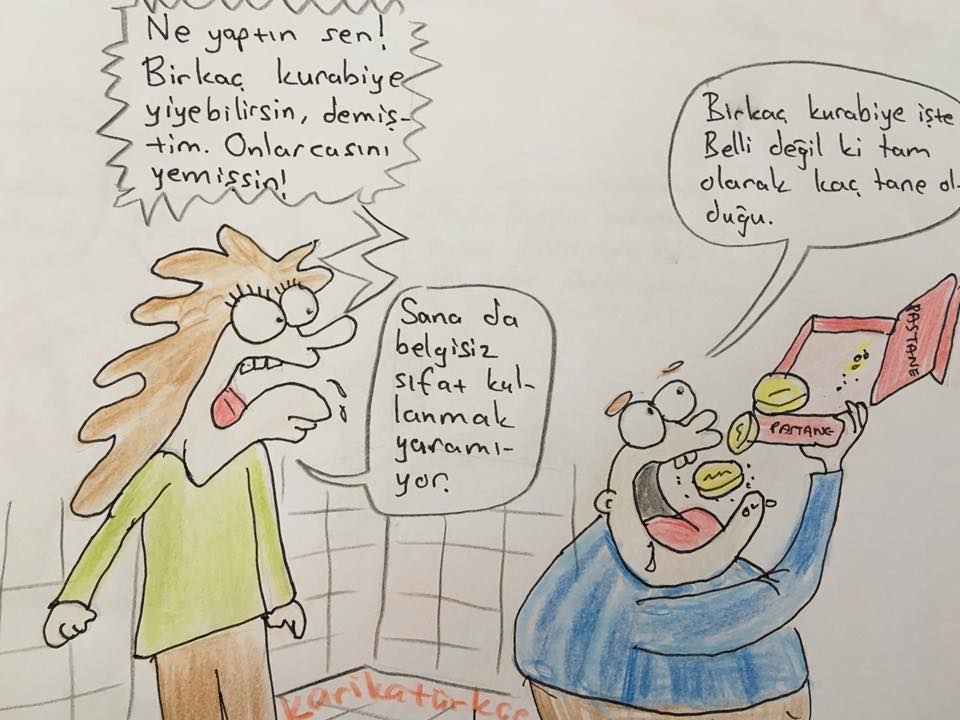 Ne yaptın sen!
Birkaç kurabiye
yiyebilirsin, demiş-
tim. Onlarcasını
yemişsin!
Birkaç kurabiye işte
Belli değil ki tam
olarak kaç tane ol-
duğu.
Sana da
belgisiz
sıfat kul-
lanmak
yaramı-
yor.
PASTANE
PASTANE
karikatürkçe